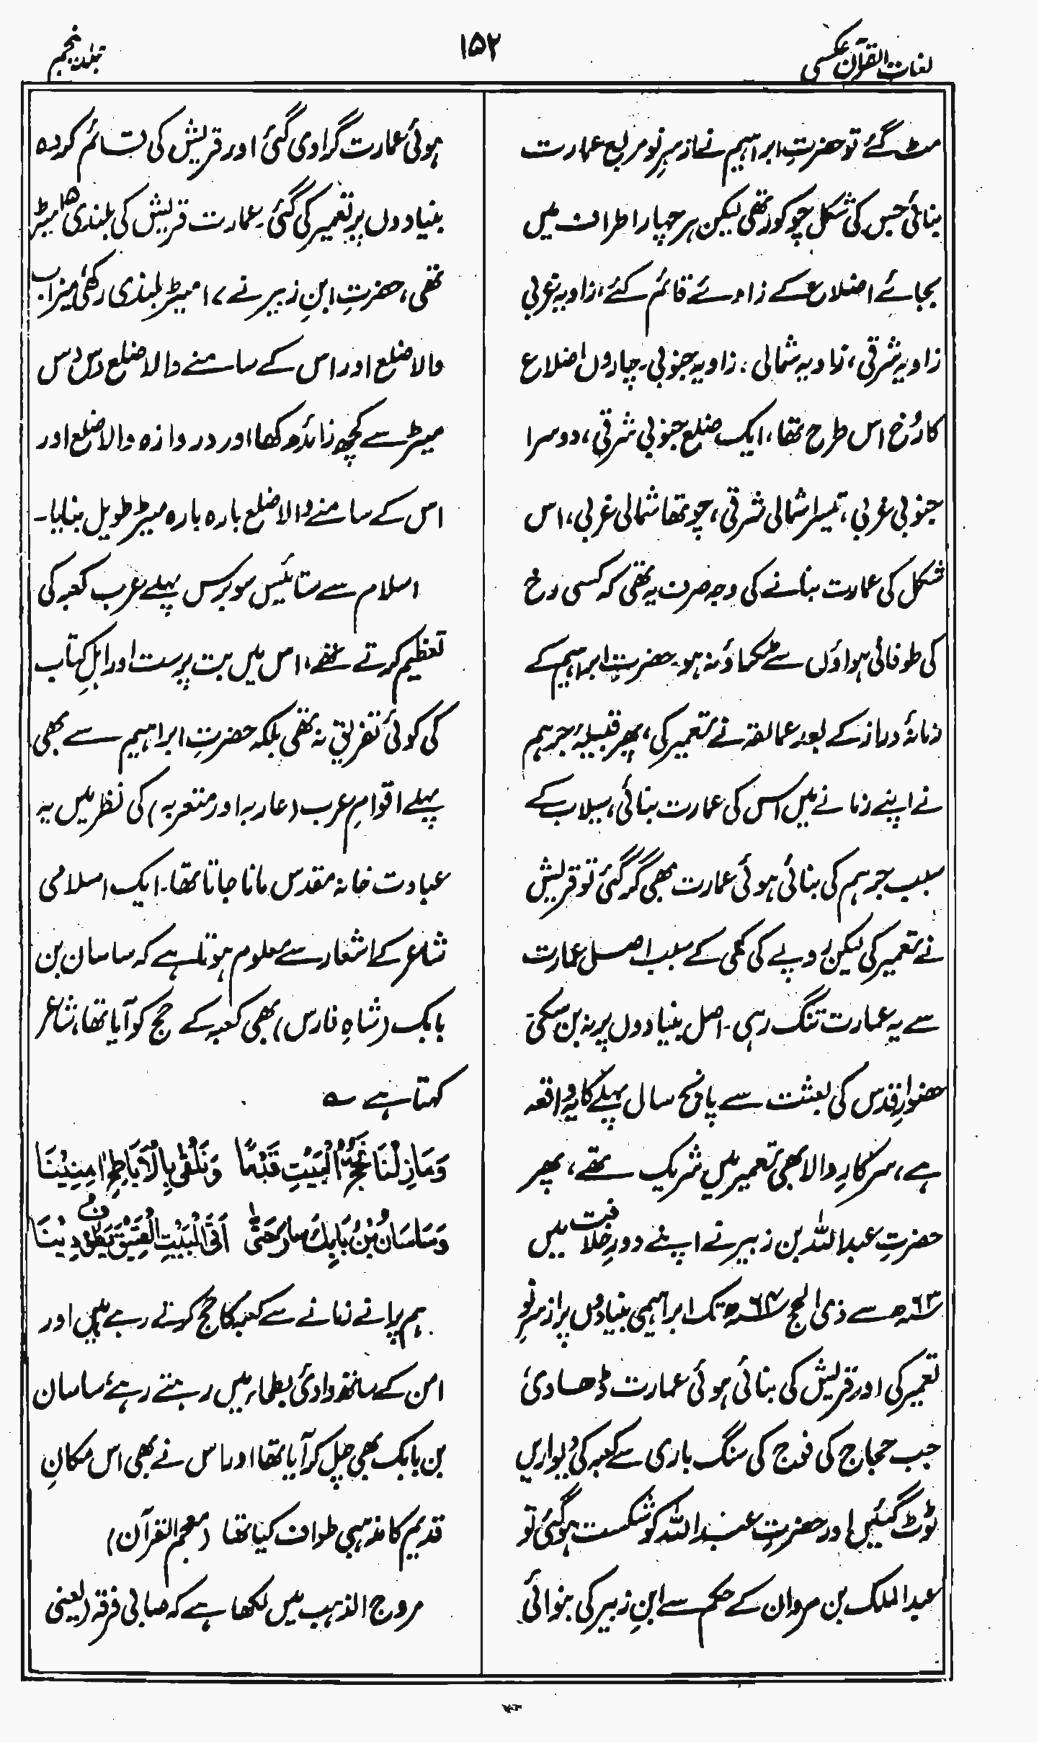 لغات القرآن عکسی
۱۵۲
جلد پنجم
مٹ گئے تو حضرتِ ابراہیم نے از سرِ نو مربع عمارت
بنائی جس کی شکل چوکور تھی لیکن ہر چہار اطراف میں
بجائے اضلاع کے زاوئے قائم کئے، زاویہ غربی
زاویہ شرقی، زاویہ شمالی، زاویہ جنوبی۔ چاروں اضلاع
کا رُخ اس طرح تھا، ایک ضلع جنوبی شرقی، دوسرا
جنوبی غربی، تیسرا شمالی شرقی، چوتھا شمالی غربی، اس
شکل کی عمارت بنانے کی وجہ صرف یہ تھی کہ کسی رخ
کی طوفانی ہواؤں سے ٹکراؤ نہ ہو۔ حضرتِ ابراہیم کے
زمانۂ دراز کے بعد عمالقہ نے تعمیر کی، پھر قبیلۂ جرہم
نے اپنے زمانے میں اس کی عمارت بنائی، سیلاب کے
سبب جرہم کی بنائی ہوئی عمارت بھی گر گئی تو قریش
نے تعمیر کی لیکن روپے کی کمی کے سبب اصل عمارت
سے یہ عمارت تنگ رہی۔ اصل بنیادوں پر نہ بن سکی
حضورِ اقدس کی بعثت سے پانچ سال پہلے کا یہ واقعہ
ہے، سرکارِ والا بھی تعمیر میں شریک تھے، پھر
حضرت عبداللہ بن زبیر نے اپنے دورِ خلافت میں
۶۳ھ سے ذی الحج ۶۴ھ تک ابراہیمی بنیادوں پر از سرِ نو
تعمیر کی اور قریش کی بنائی ہوئی عمارت ڈھادی
جب حجاج کی فوج کی سنگ باری سے کعبہ کی دیواریں
ٹوٹ گئیں اور حضرتِ عبداللہ کو شکست ہوگئی تو
عبدالملک بن مروان کے حکم سے ابنِ زبیر کی بنوائی
ہوئی عمارت گرادی گئی اور قریش کی قائم کردہ
بنیادوں پر تعمیر کی گئی۔ عمارت قریش کی بلندی ۱۵ میٹر
تھی، حضرتِ ابنِ زبیر نے ۱۷ میٹر بلندی رکھی میزاب
والا ضلع اور اس کے سامنے والا ضلع دس دس
میٹر سے کچھ زائد رکھا اور دروازہ والا ضلع اور
اس کے سامنے والا ضلع بارہ بارہ میٹر طویل بنایا۔
اسلام سے ستائیس سو برس پہلے عرب کعبہ کی
تعظیم کرتے تھے، اس میں بت پرست اور اہلِ کتاب
کی کوئی تفریق نہ تھی بلکہ حضرتِ ابراہیم سے بھی
پہلے اقوامِ عرب (عاربہ اور متعربہ) کی نظر میں یہ
عبادت خانہ مقدس مانا جاتا تھا۔ ایک اسلامی
شاعر کے اشعار سے معلوم ہوتا ہے کہ ساسان بن
بابک (شاہِ فارس) بھی کعبہ کے حج کو آیا تھا، شاعر
کہتا ہے ؎
وَمَا زِلْنَا نَحُجُّ الْبَيْتَ قِدْمًا وَنُلْقٰى بِالْاَبَاطِحِ اٰمِنِيْنَا
وَسَاسَانُ بْنُ بَابَكَ سَارَ حَتّٰى اَتَى الْبَيْتَ الْعَتِيْقَ يَطُوْفُ دِيْنَا
ہم پرانے زمانے سے کعبہ کا حج کرتے رہے ہیں اور
امن کے ساتھ وادئ بطحاء میں رہتے رہے، ساسان
بن بابک بھی چل کر آیا تھا اور اس نے بھی اس مکانِ
قدیم کا مذہبی طواف کیا تھا (معجم القرآن)
مروج الذہب میں لکھا ہے کہ صابی فرقہ (یعنی